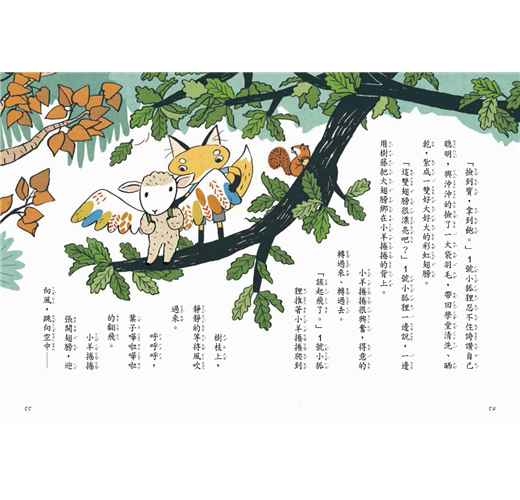 「撿到寶，拿到飽。」1號小狐狸忍不住誇讚自己
聰明，興沖沖的撿了一大袋羽毛，帶回學堂清洗、晒
乾，紮成一雙好大好大的彩虹翅膀。
「這雙翅膀很漂亮吧？」1號小狐狸一邊說，一邊
用樹藤把大翅膀綁在小羊捲捲的背上。
小羊捲捲很興奮，得意的
轉過來、轉過去。
「該起飛了。」1號小狐
狸推著小羊捲捲爬到
樹枝上，
靜靜的等待風吹
過來。
呼呼呼，
葉子嘩啦嘩啦
的翻飛。
小羊捲捲
張開翅膀，迎
向風，跳向空中——
54
55